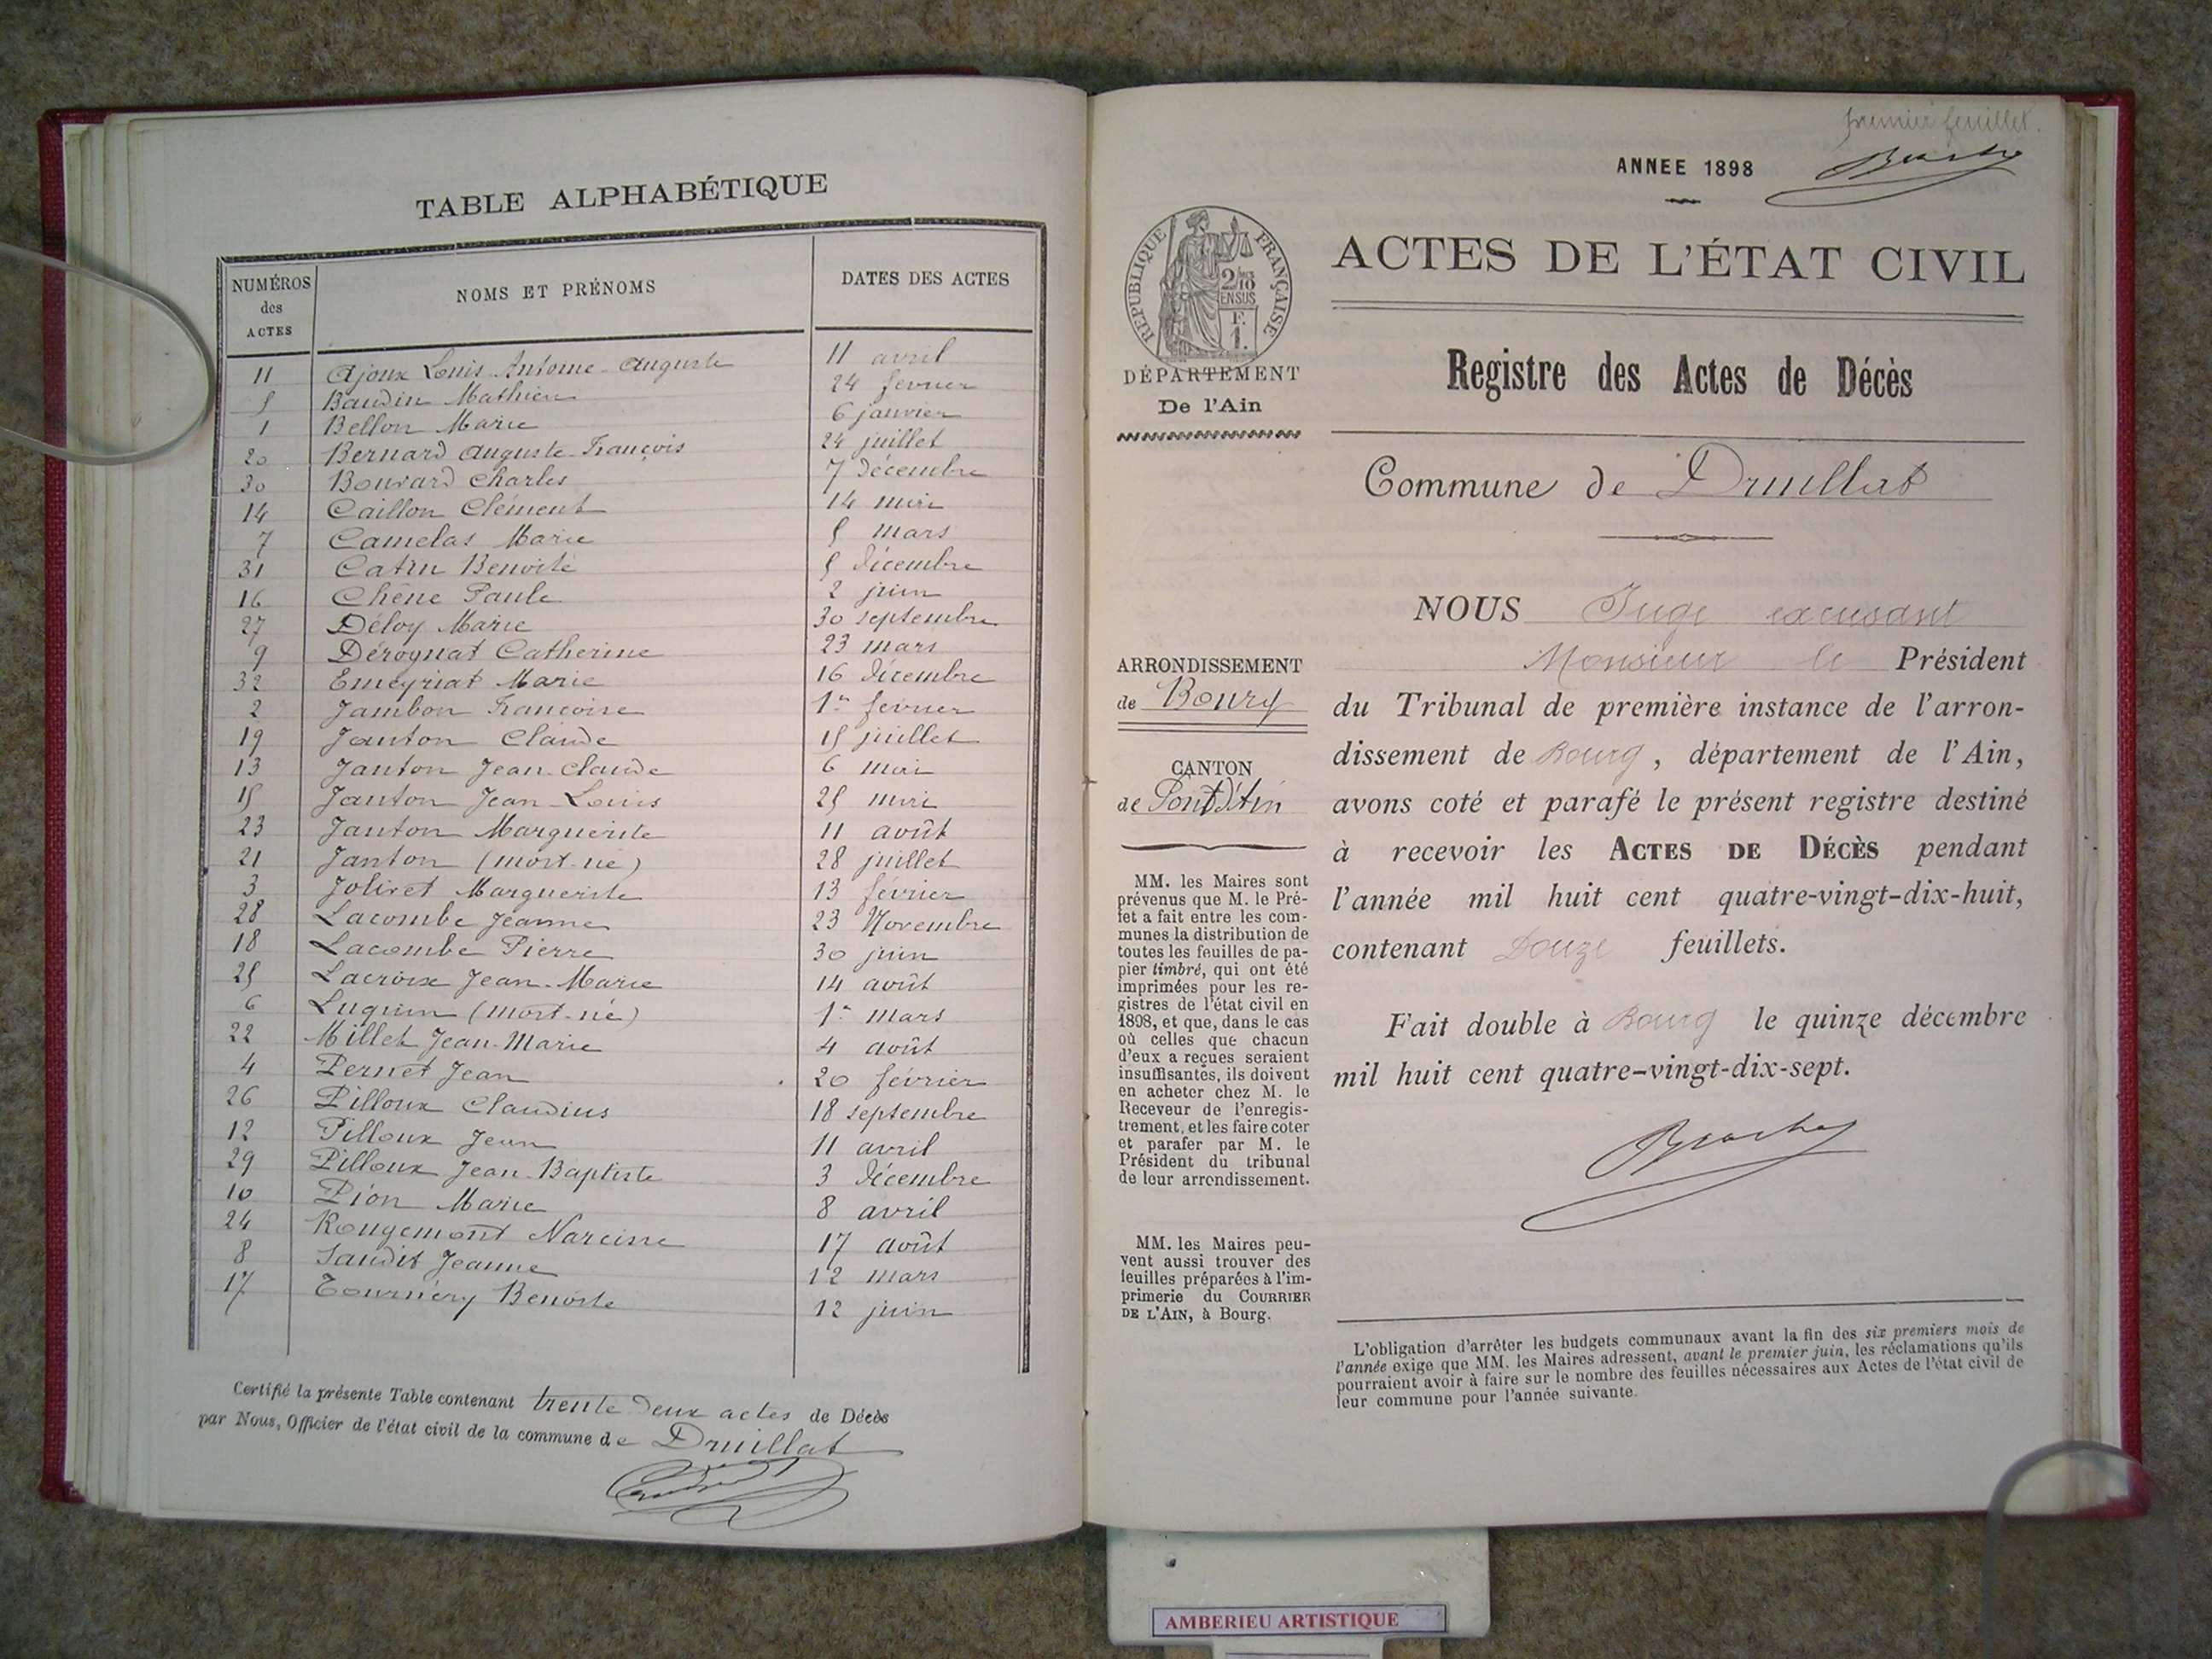 TABLE ALPHABÉTIQUE
NUMÉROS des ACTES NOMS ET PRÉNOMS DATES DES ACTES
11 Ajoux Louis Antoine Auguste 11 avril
5 Baudin Mathieu 24 février
1 Bellon Marie 6 janvier
20 Bernard Auguste François 24 juillet
30 Bouvard Charles 7 décembre
14 Caillon Clément 14 mai
7 Camelas Marie 5 mars
31 Catin Benoite 5 décembre
16 Chêne Paule 2 juin
27 Déloy Marie 30 septembre
9 Dérognat Catherine 23 mars
32 Emeyriat Marie 16 décembre
2 Jambon Françoise 1er février
19 Janton Claude 15 juillet
13 Janton Jean-Claude 6 mai
15 Janton Jean-Louis 25 mai
23 Janton Marguerite 11 août
21 Janton (mort-né) 28 juillet
3 Jolivet Marguerite 13 février
28 Lacombe Jeanne 23 Novembre
18 Lacombe Pierre 30 juin
25 Lacroix Jean-Marie 14 août
6 Luquin (mort-né) 1er mars
22 Millet Jean-Marie 4 août
4 Pernet Jean 20 février
26 Pilloux Claudius 18 septembre
12 Pilloux Jean 11 avril
29 Pilloux Jean-Baptiste 3 décembre
10 Pion Marie 8 avril
24 Rougemont Narcisse 17 août
8 Saudit Jeanne 12 mars
17 Tournéry Benoite 12 juin
Certifié la présente Table contenant trente deux actes de Décès
par Nous, Officier de l'état civil de la commune de Druillat
premier feuillet.
ANNEE 1898
RÉPUBLIQUE FRANÇAISE
2/10
EN SUS
F.
1.
DÉPARTEMENT
De l'Ain
ARRONDISSEMENT
de Bourg
CANTON
de Pont d'Ain
MM. les Maires sont
prévenus que M. le Pré-
fet a fait entre les com-
munes la distribution de
toutes les feuilles de pa-
pier timbré, qui ont été
imprimées pour les re-
gistres de l'état civil en
1898, et que, dans le cas
où celles que chacun
d'eux a reçues seraient
insuffisantes, ils doivent
en acheter chez M. le
Receveur de l'enregis-
trement, et les faire coter
et parafer par M. le
Président du tribunal
de leur arrondissement.
MM. les Maires peu-
vent aussi trouver des
feuilles préparées à l'im-
primerie du COURRIER
DE L'AIN, à Bourg.
ACTES DE L'ÉTAT CIVIL
Registre des Actes de Décès
Commune de Druillat
NOUS Juge excusant
Monsieur le Président
du Tribunal de première instance de l'arron-
dissement de Bourg, département de l'Ain,
avons coté et parafé le présent registre destiné
à recevoir les ACTES DE DÉCÈS pendant
l'année mil huit cent quatre-vingt-dix-huit,
contenant Douze feuillets.
Fait double à Bourg le quinze décembre
mil huit cent quatre-vingt-dix-sept.
L'obligation d'arrêter les budgets communaux avant la fin des six premiers mois de
l'année exige que MM. les Maires adressent, avant le premier juin, les réclamations qu'ils
pourraient avoir à faire sur le nombre des feuilles nécessaires aux Actes de l'état civil de
leur commune pour l'année suivante.
AMBERIEU ARTISTIQUE